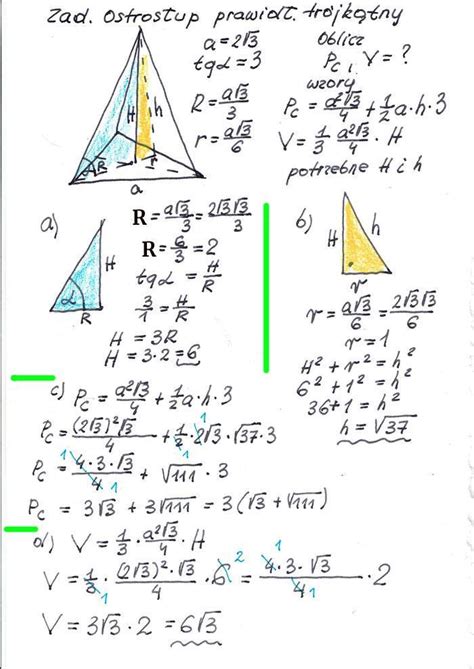 Zad. Ostrosłup prawidł. trójkątny
a = 2√3
tgα = 3
R = a√3/3
r = a√3/6
Oblicz
Pc, V = ?
wzory
Pc = a²√3/4 + 1/2 a·h·3
V = 1/3 a²√3/4 · H
potrzebne H i h
H h
α R r
a
a)
H
α
R
R = a√3/3 = 2√3√3/3
R = 6/3 = 2
tgα = H/R
3/1 = H/R
H = 3R
H = 3·2 = 6
b)
H h
r
r = a√3/6 = 2√3√3/6
r = 1
H² + r² = h²
6² + 1² = h²
36+1 = h²
h = √37
c) Pc = a²√3/4 + 1/2 a·h·3
Pc = (2√3)²√3/4 + 1/2 · 2√3 · √37 · 3
1
Pc = 4·3·√3/4 + √111 · 3
1 1
Pc = 3√3 + 3√111 = 3(√3 + √111)
d) V = 1/3 · a²√3/4 · H
V = 1/3 · (2√3)²·√3/4 · 6 = 4·3·√3/4 · 2
1 2 1 1
V = 3√3 · 2 = 6√3